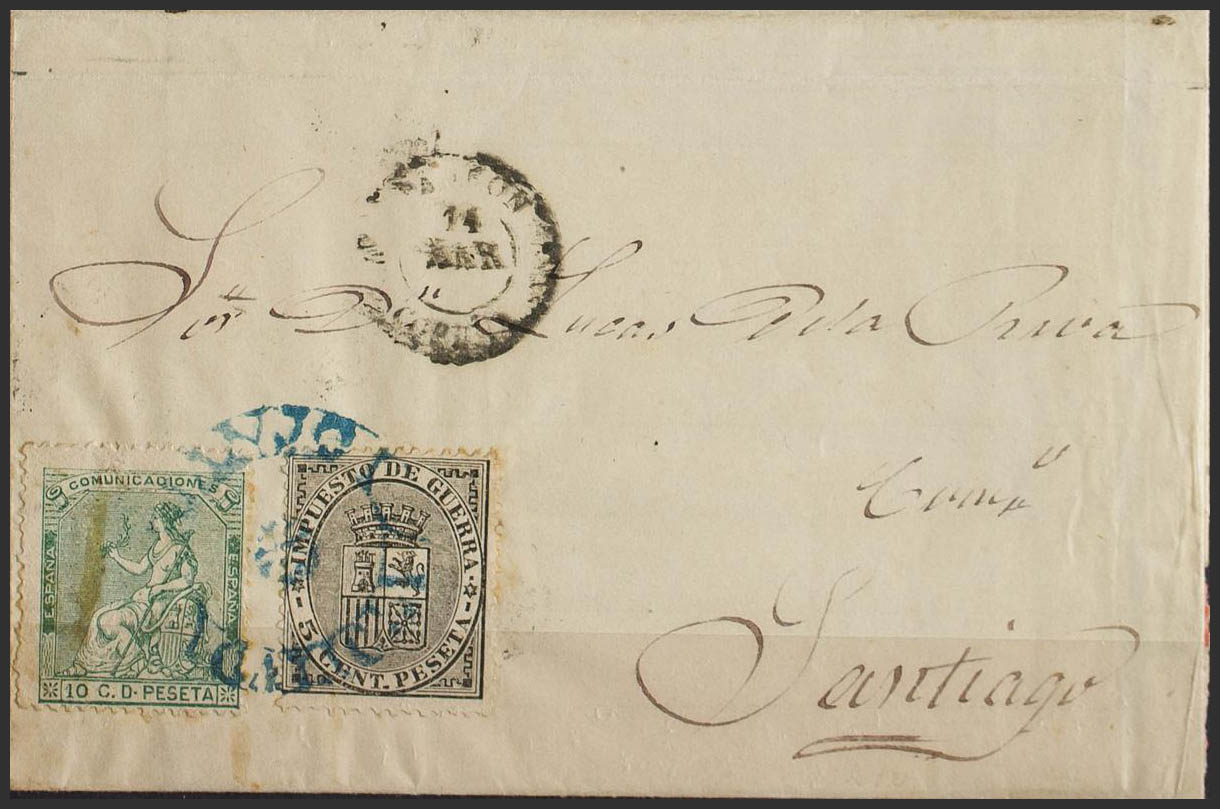 14
Sor Dn Lucas de la Riva
Como
Santiago
COMUNICACIONES
ESPAÑA
ESPAÑA
10 C. D. PESETA
IMPUESTO DE GUERRA
5 CENT. PESETA